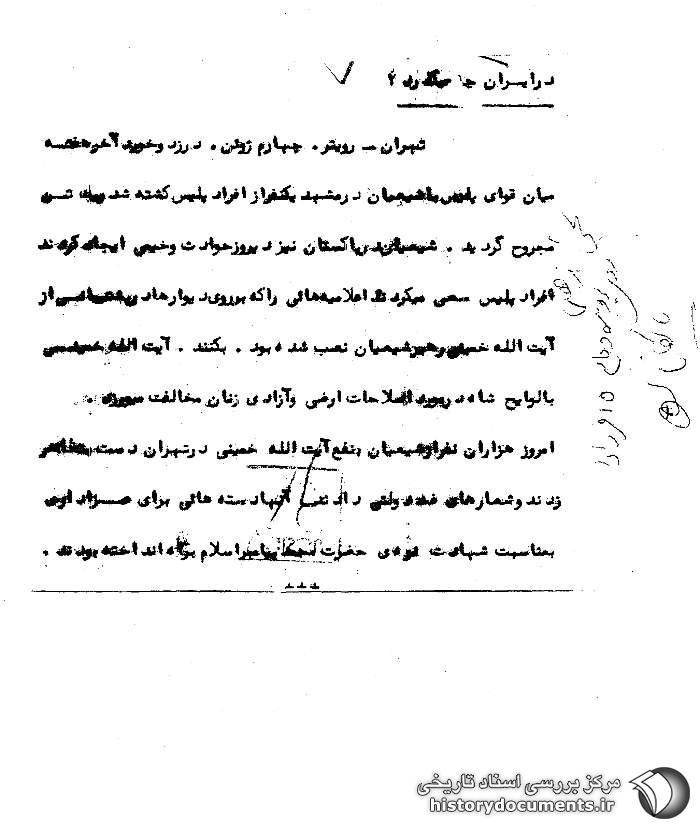 در ایران چه میگذرد ؟
تهران ــ رویتر . چهارم ژوئن . در زد و خورد آخر هفته
میان قوای پلیس با شیعیان در مشهد یکنفر از افراد پلیس کشته شد و تن
مجروح گردید . شیعیان نیز دیروز حوادث وخیمی ایجاد کردند
افراد پلیس سعی میکردند اعلامیه‌هائی را که بر روی دیوارها از
آیت الله خمینی رهبر شیعیان نصب شده بود . بکنند . آیت الله خمینی
با لوایح شاه در مورد اصلاحات ارضی و آزادی زنان مخالفت میورزد .
امروز هزاران نفر از شیعیان بنفع آیت الله خمینی در تهران دست بتظاهر
زدند و شعارهای ضد دولتی دادند آنها دسته هائی برای عزاداری
بمناسبت شهادت نوه‌ی حضرت محمد پیامبر اسلام براه انداخته بودند .
۱۵ خرداد
مرکز بررسی اسناد تاریخی
historydocuments.ir